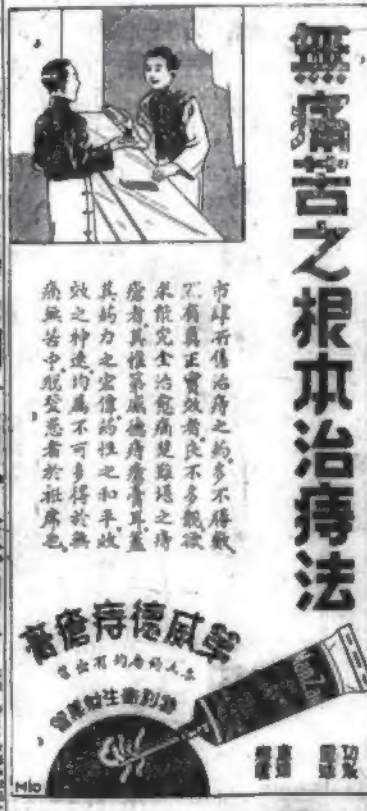 無痛苦之根本治痔法
市肆所售治痔之药多不勝數
不有真正實效者良不多觀欲
求能完全治愈痛楚難堪之痔
瘡者其惟第威德痔瘡膏耳蓋
其药力之宏偉药性之和平收
效之神速均屬不可多得於無
痛無苦中脱登患者於袵席也
第威德痔瘡膏
各大药房均有出售
MIO